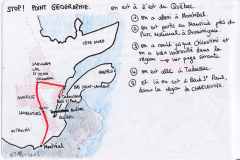 STOP! POINT GEOGRAPHIE.
on est à l'est du Québec
CÔTE NORD
SAGUENAY
LAC
ST JEAN
MAURICIE
LAURENTIDES
OUTAOUAIS
BAS SAINT LAURENT
Tadoussac
Québec
Montréal
① on a atterri à Montréal.
② on est partis au
Parc National,
③ on a roulé jusque Chicoutimi et
on a bien vadrouillé dans la
région → voir page suivante
④ on est allés à Tadoussac
⑤ Et là on est à Baie St Paul,
dans la région de CHARLEVOIX.